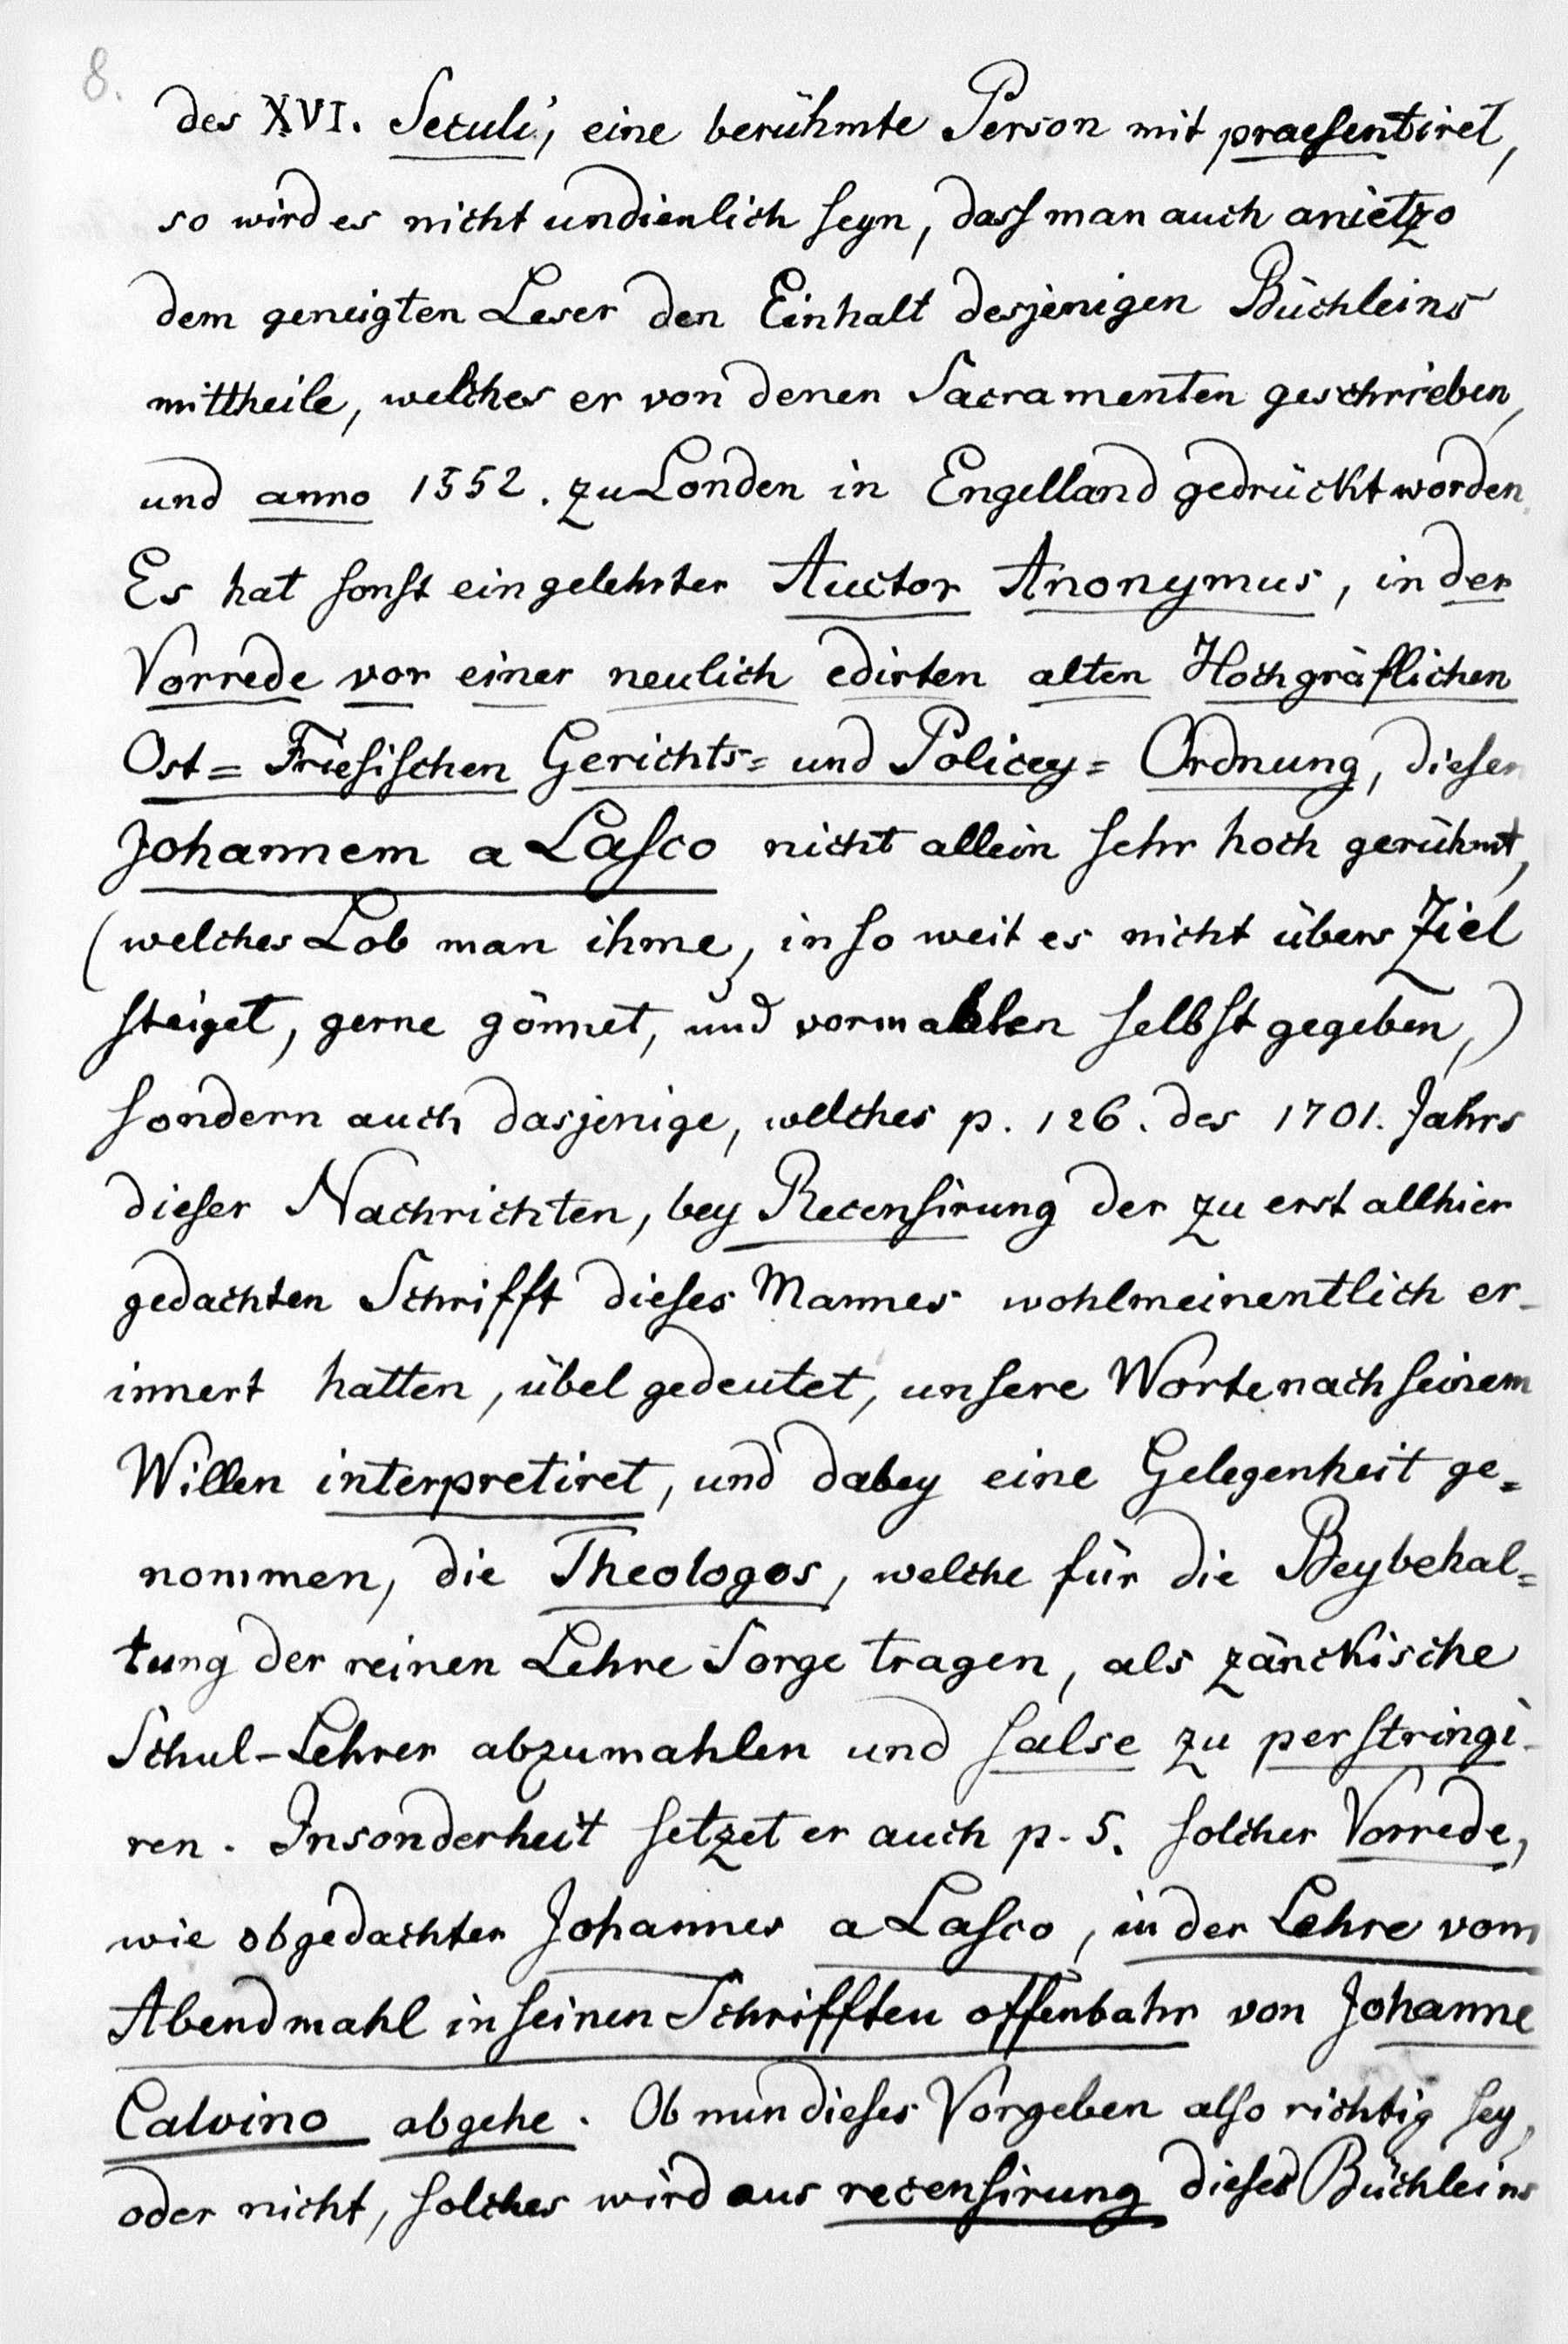 8.
des XVI. Seculi, eine berühmte Person mit praesentiret,
so wird es nicht undienlich seyn, dass man auch anietzo
dem geneigten Leser den Einhalt desjenigen Büchleins
mittheile, welches er von denen Sacramenten geschrieben,
und anno 1552. zu Londen in Engelland gedrückt worden.
Es hat sonst ein gelehrter Auctor Anonymus, in der
Vorrede vor einer neulich edirten alten Hochgräflichen
Ost= Friesischen Gerichts= und Policey= Ordnung, diesen
Johannem a Lasco nicht allein sehr hoch gerühmt,
(welches Lob man ihme, in so weit es nicht übers Ziel
steiget, gerne gönnet, und vormahlen selbst gegeben,)
sondern auch dasjenige, welches p. 126. des 1701. Jahrs
dieser Nachrichten, bey Recensirung der zu erst allhier
gedachten Schrifft dieses Mannes wohlmeinentlich er-
innert hatten, übel gedeutet, unsere Worte nach seinem
Willen interpretiret, und dabey eine Gelegenheit ge=
nommen, die Theologos, welche für die Beybehal=
tung der reinen Lehre Sorge tragen, als zänckische
Schul-Lehrer abzumahlen und salse zu perstringi-
ren. Insonderheit setzet er auch p. 5. solcher Vorrede,
wie obgedachter Johannes a Lasco, in der Lehre vom
Abendmahl in seinen Schrifften offenbahr von Johanne
Calvino abgehe. Ob nun dieses Vorgeben also richtig sey,
oder nicht, solches wird aus recensirung dieses Büchleins